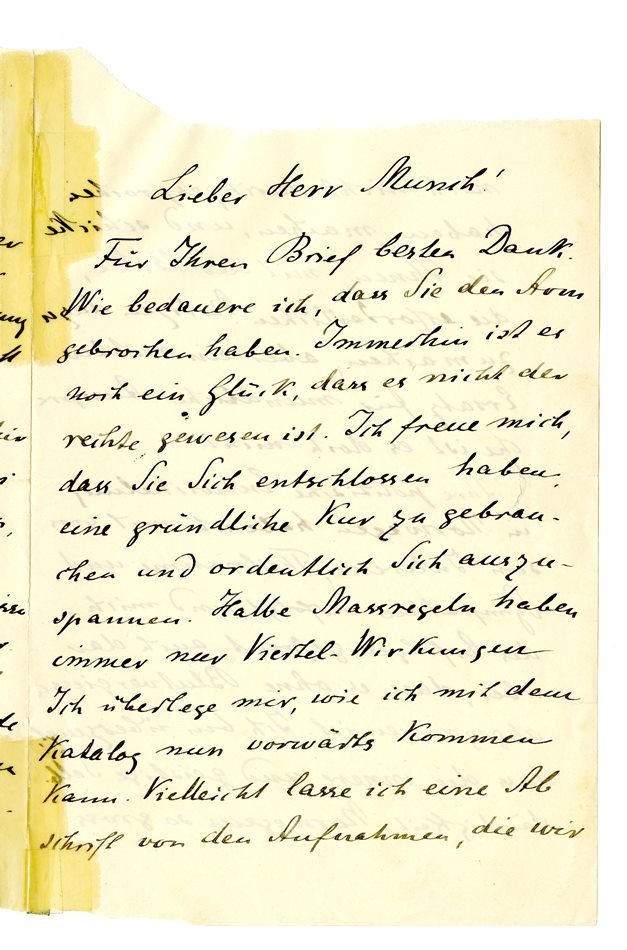 Lieber Herr Munch!
Für Ihren Brief besten Dank.
Wie bedauere ich, dass Sie den Arm
gebrochen haben. Immerhin ist es
noch ein Glück, dass es nicht der
rechte gewesen ist. Ich freue mich,
dass Sie Sich entschlossen haben,
eine gründliche Kur zu gebrau-
chen und ordentlich Sich auszu-
spannen. Halbe Massregeln haben
immer nur Viertel-Wirkungen
Ich überlege mir, wie ich mit dem
Katalog nun vorwärts kommen
kann. Vielleicht lasse ich eine Ab
schrift von den Aufnahmen, die wir